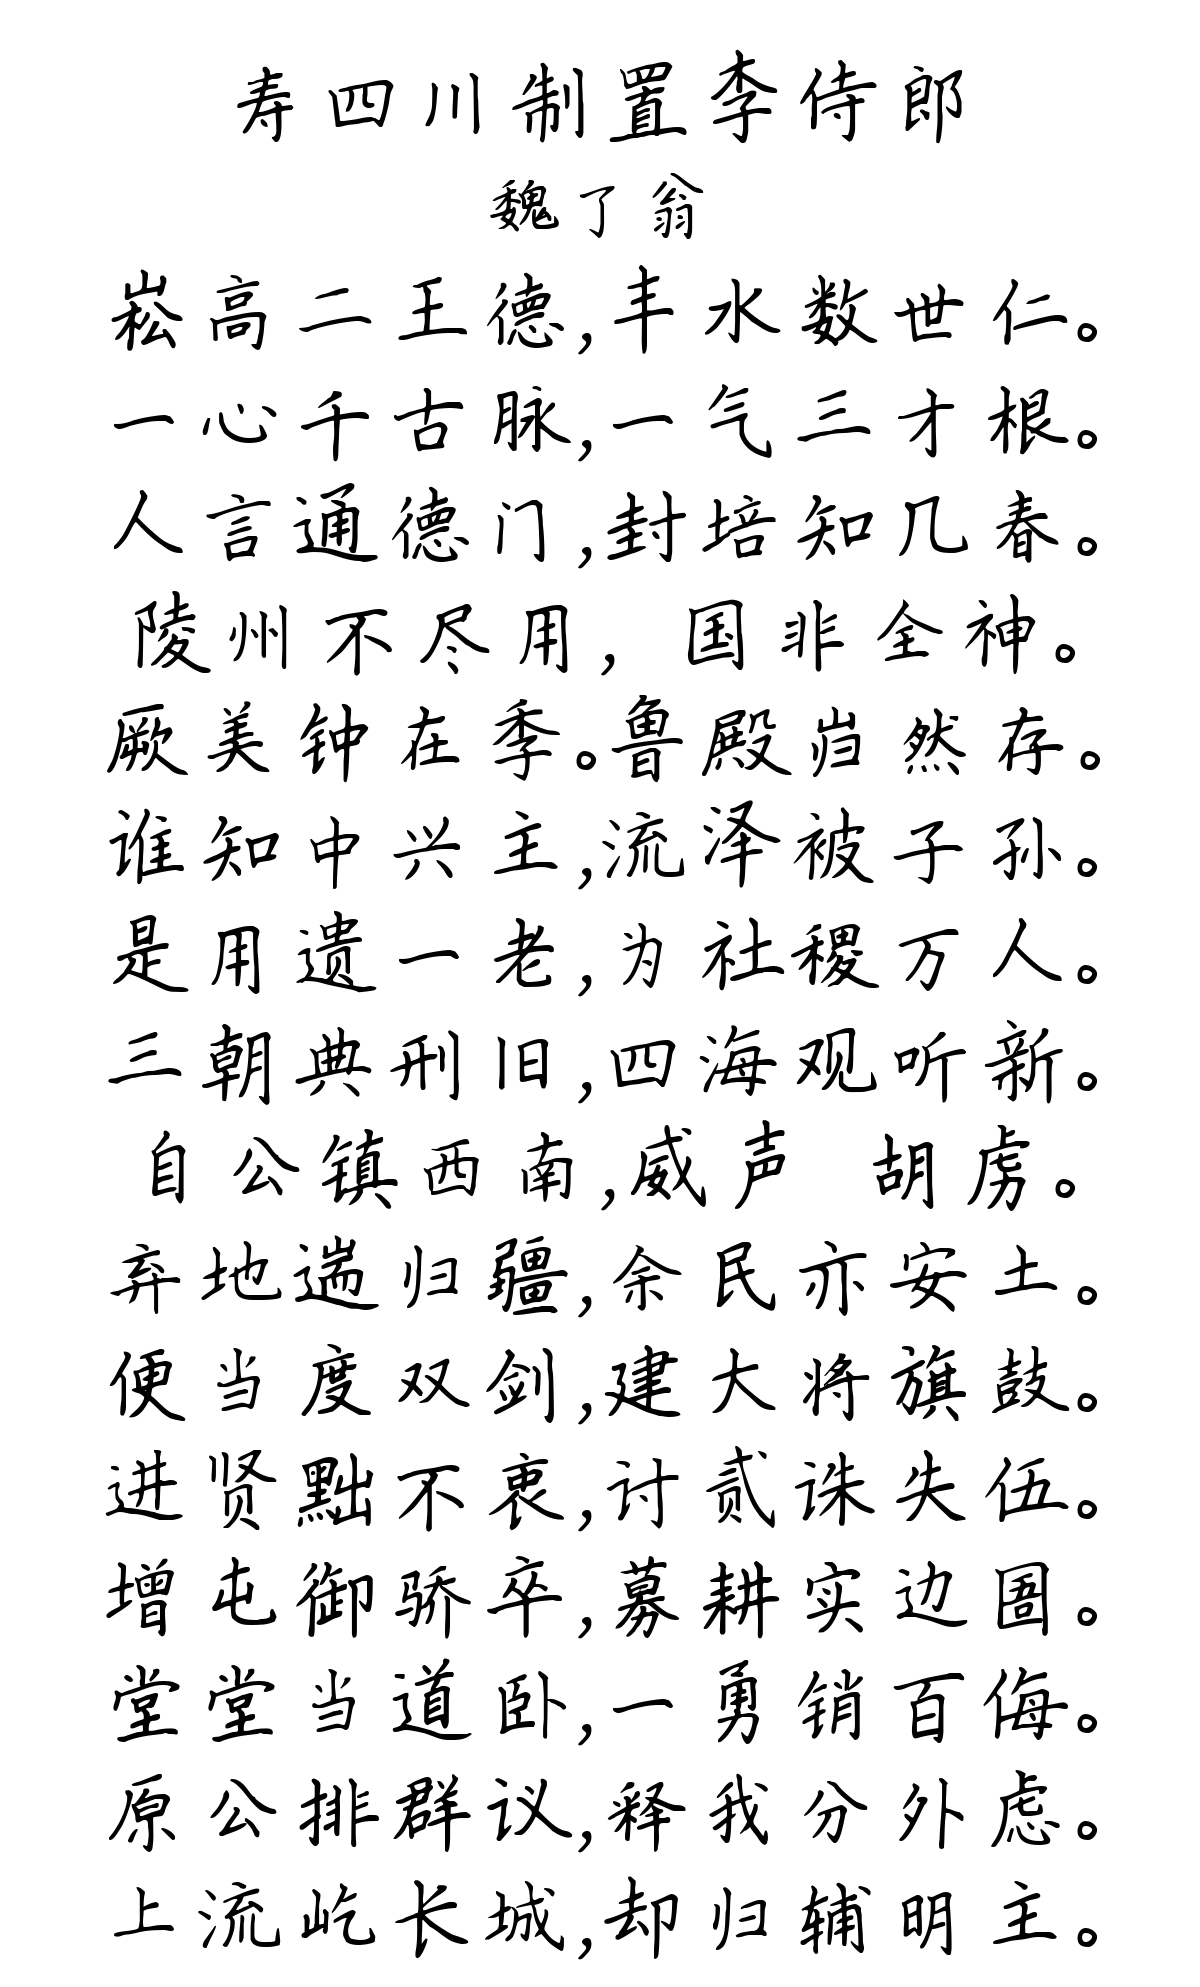 寿四川制置李侍郎
魏了翁
崧高二王德,丰水数世仁。
一心千古脉,一气三才根。
人言通德门,封培知几春。
陵州不尽用,国非全神。
厥美钟在季。鲁殿岿然存。
谁知中兴主,流泽被子孙。
是用遗一老,为社稷万人。
三朝典刑旧,四海观听新。
自公镇西南,威声 胡虏。
弃地遄归疆,余民亦安土。
便当度双剑,建大将旗鼓。
进贤黜不衷,讨贰诛失伍。
增屯御骄卒,募耕实边圄。
堂堂当道卧,一勇销百侮。
原公排群议,释我分外虑。
上流屹长城,却归辅明主。